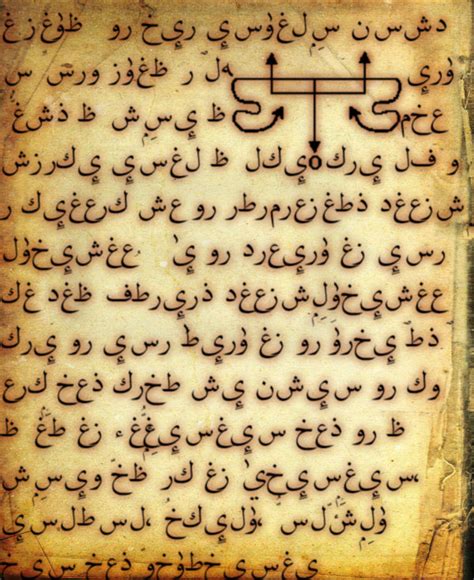 دشسن سِلغوٰسيٍ ريٍخ رو ظوٰغ زغ
وٰريٍ لہ ر ظغوٰز ورسٌ س
عخم ظ يٍسِمِش ظ ذشغ
و فل يٍرك يٍكل ظ لغسيٍ يٍكرزش
شزعغد ذطغزعرمرطر روعش كرععيٍك ر
رسيٍ زغ وٰريٍعرد رو يٍ عغشيٍخوٰل
عغشيٍخوٰلِمِ شزععغد ذريٍرطف ظغد غك
ذطيٍخروٰ رو زغ وٰريٍط رسيٍ رو يٍرك
وك رو سيٍشن يٍش طخرك ذعخ كرع
ظ رو ذعخ سيٍغسيٍغغء زغ طغ ظ
سيٍغسيٍخيٰ زغ كر ظخ ويٍسِمِش
وٰلِشلس، وٰليٍكخ، لس طلسيٍ
يٍغسيٍ خطوٰخو ذعخ سيٍخ